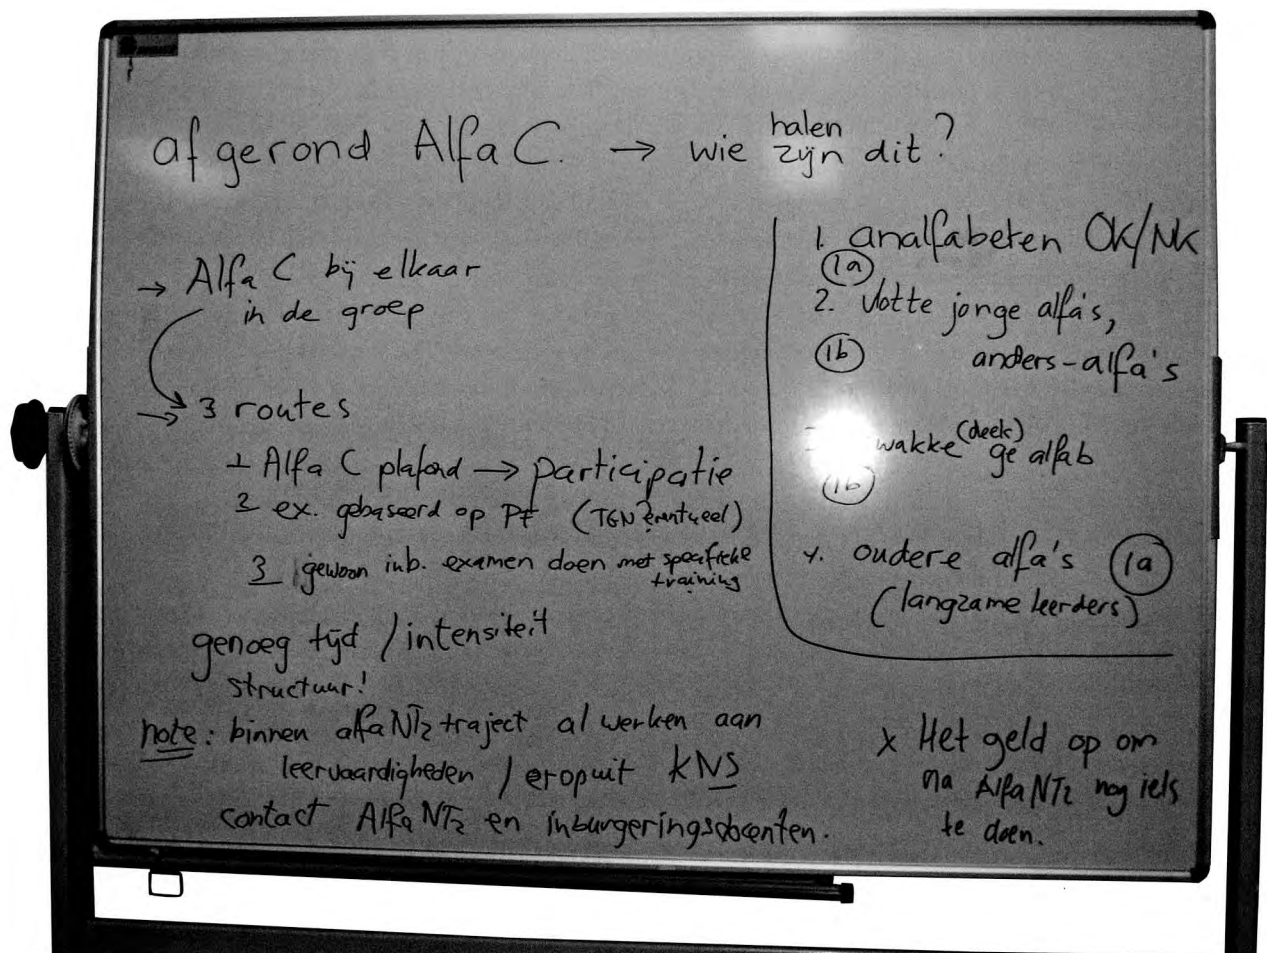 afgerond Alfa C. → wie halen zijn dit?
→ Alfa C bij elkaar
in de groep
→ 3 routes
1 Alfa C plafond → participatie
2 ex. gebaseerd op PF (TGN? eventueel)
3 gewoon inb. examen doen met specifieke
training
genoeg tijd / intensiteit
structuur!
note: binnen alfa NT2 traject al werken aan
leervaardigheden / eropuit KNS
contact Alfa NT2 en inburgeringsdocenten.
1. analfabeten OK/NK
1a
2. vlotte jonge alfa's,
1b anders-alfa's
wakke (deels) ge alfab
1b
4. oudere alfa's 1a
(langzame leerders)
x Het geld op om
na Alfa NT2 nog iets
te doen.